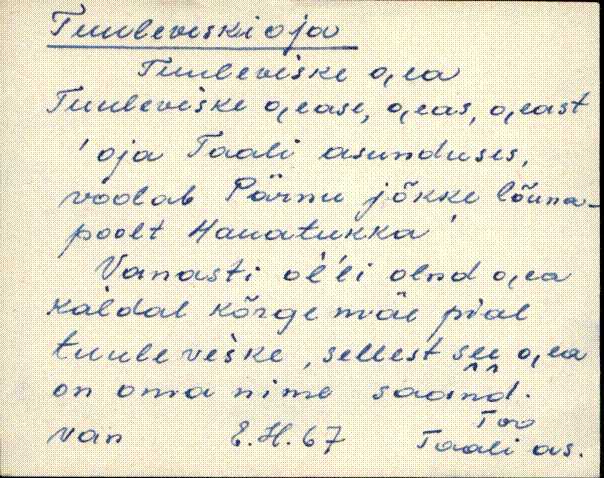 Tuuleveskioja
Tuuleviske o̬ea
Tuuleviske o̬ease, o̬eas, o̬east
'oja Taali asunduses,
voolab Pärnu jõkke lõuna-
poolt Hauatukka'
Vanasti ol'l'i olnd o̬ea
kaldal kõrge mäe pial
tuuleviske, sellest see o̬ea
on oma nime saand.
van E.H.67 Too
Taali as.